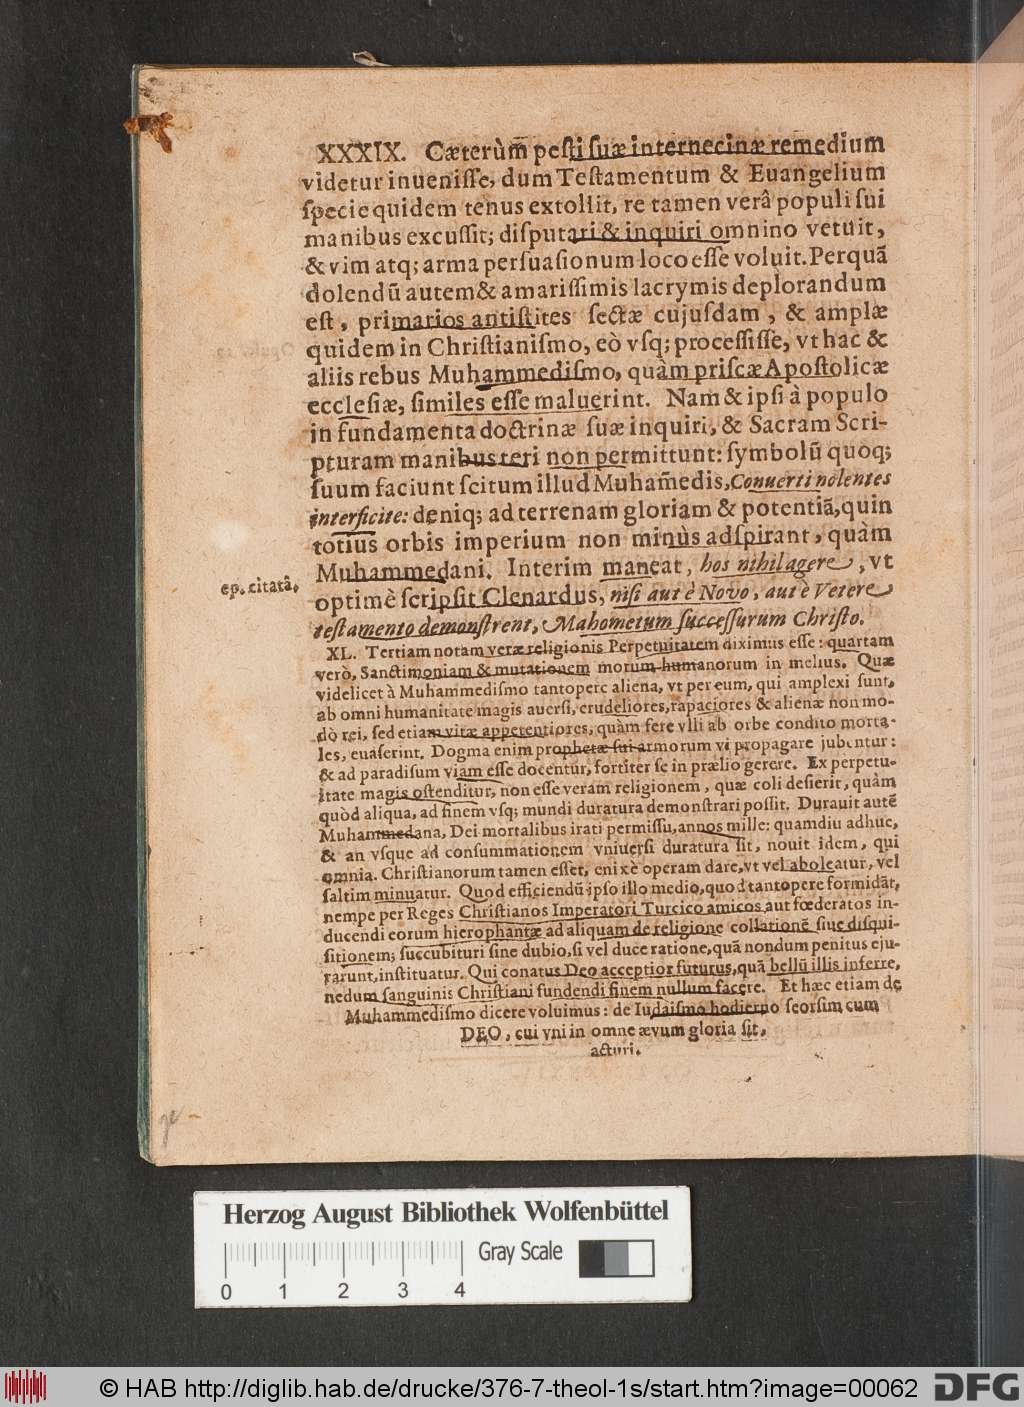 XXXIX. Cæterùm̃ pesti suæ internecinæ remedium
videtur inuenisse, dum Testamentum & Euangelium
specie quidem tenus extollit, re tamen verâ populi sui
manibus excussit; disputari & inquiri omnino vetuit,
& vim atq; arma persuasionum loco esse voluit. Perquā
dolendū autem & amarissimis lacrymis deplorandum
est, primarios antistites sectæ cujusdam, & amplæ
quidem in Christianismo, eò vsq; processisse, vt hac &
aliis rebus Muhammedismo, quàm priscæ Apostolicæ
ecclesiæ, similes esse maluerint. Nam & ipsi à populo
in fundamenta doctrinæ suæ inquiri, & Sacram Scri-
pturam manibus teri non permittunt: symbolū quoq;
suum faciunt scitum illud Muham̃edis, Conuerti nolentes
interficite: deniq; ad terrenam gloriam & potentiā, quin
totius orbis imperium non minùs adspirant, quàm
Muhammedani. Interim maneat, hos nihil agere, vt
ep. citatâ.
optimè scripsit Clenardus, nisi aut è Novo, aut è Vetere
testamento demonstrent, Mahometum successurum Christo.
XL. Tertiam notam veræ religionis Perpetuitatem diximus esse: quartam
verò, Sanctimoniam & mutationem morum humanorum in melius. Quæ
videlicet à Muhammedismo tantopere aliena, vt per eum, qui amplexi sunt,
ab omni humanitate magis auersi, crudeliores, rapaciores & alienæ non mo-
dò rei, sed etiam vitæ appetentiores, quàm fere vlli ab orbe condito morta-
les, euaserint. Dogma enim prophetæ sui armorum vi propagare jubentur:
& ad paradisum viam esse docentur, fortiter se in prælio gerere. Ex perpetu-
itate magis ostenditur, non esse veram religionem, quæ coli desierit, quàm
quòd aliqua, ad finem vsq; mundi duratura demonstrari possit. Durauit autē
Muhammedana, Dei mortalibus irati permissu, annos mille: quamdiu adhuc,
& an vsque ad consummationem vniuersi duratura sit, nouit idem, qui
omnia. Christianorum tamen esset, enixè operam dare, vt vel aboleatur, vel
saltim minuatur. Quod efficiendū ipso illo medio, quod tantopere formidāt,
nempe per Reges Christianos Imperatori Turcico amicos aut fœderatos in-
ducendi eorum hierophantæ ad aliquam de religione collationē siue disqui-
sitionem; succubituri sine dubio, si vel duce ratione, quā nondum penitus eju-
rarunt, instituatur. Qui conatus Deo acceptior futurus, quā bellū illis inferre,
nedum sanguinis Christiani fundendi finem nullum facere. Et hæc etiam de
Muhammedismo dicere voluimus: de Iudaismo hodierno seorsim cum
DEO, cui vni in omne ævum gloria sit,
acturi.
Herzog August Bibliothek Wolfenbüttel
Gray Scale
0 1 2 3 4
© HAB http://diglib.hab.de/drucke/376-7-theol-1s/start.htm?image=00062
DFG